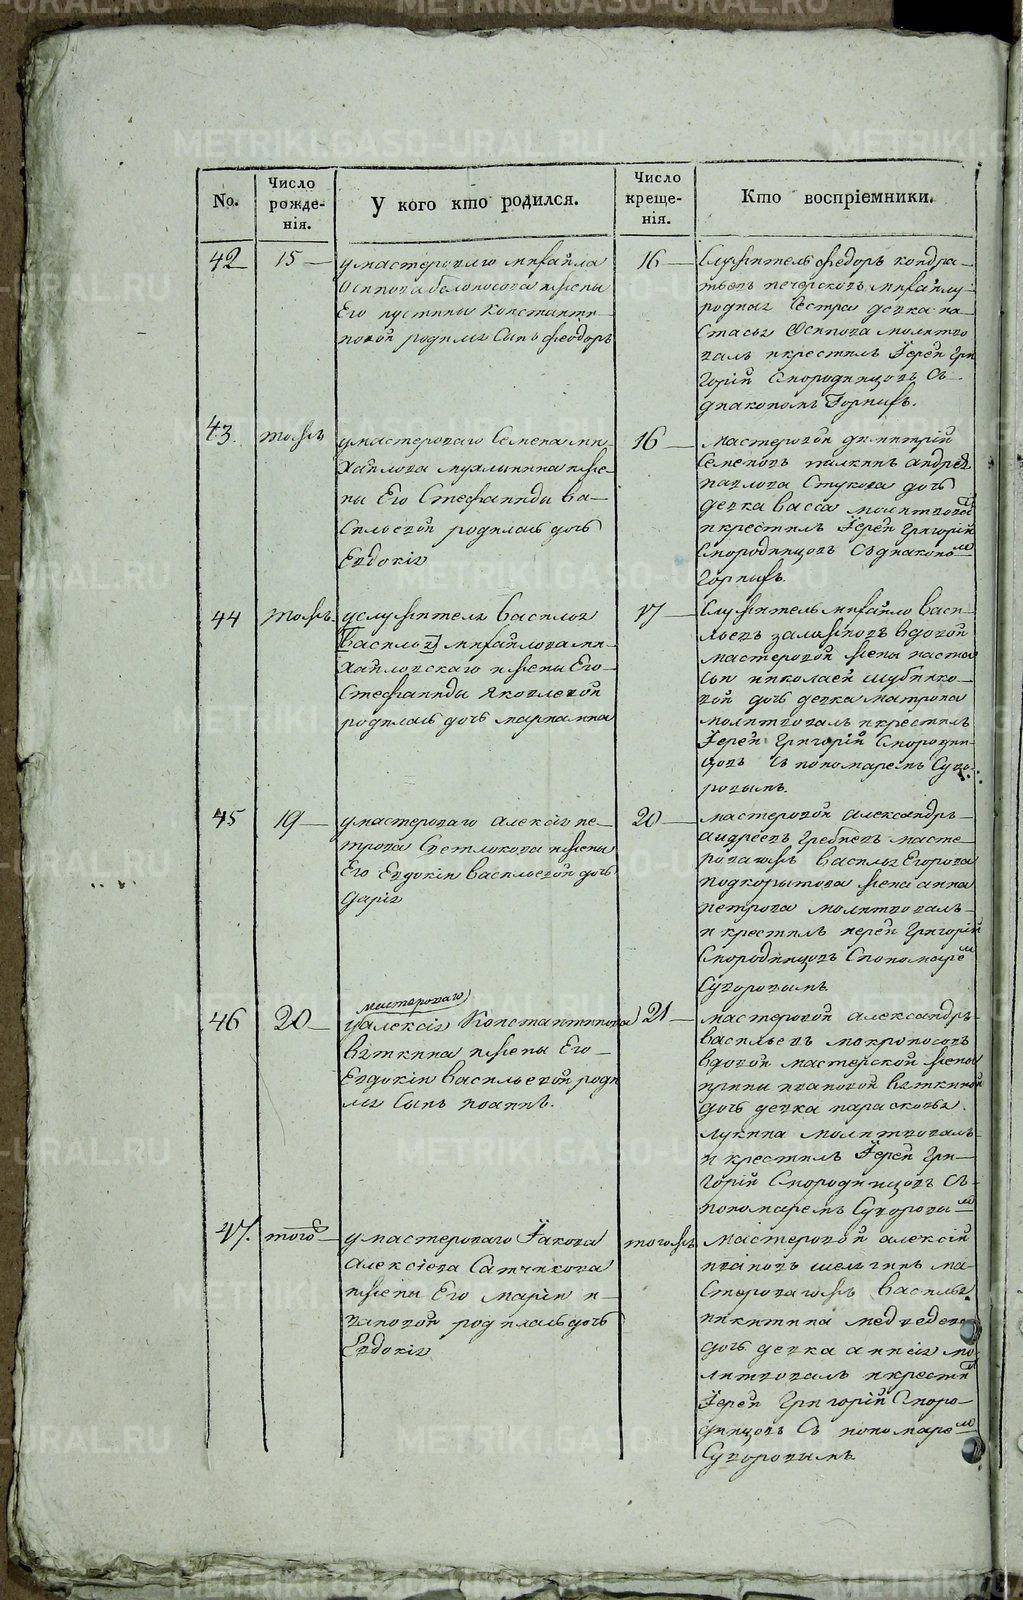 No.
Число рожде-
нія.
У кого кто родился.
Число креще-
нія.
Кто воспріемники.
42
15
у мастероваго михайла
Осипова белоносова жены
Его Иустины константи-
новой родился Сынъ феодоръ
16
Служитель Федоръ кондра-
тьевъ печерскихъ михайлу
родная Сестра девка на-
стасья Осипова молитво
валъ и крестилъ Іерей Гри
горій Смородинцовъ Съ
диакономъ Горныхъ.
43
тожъ
у мастероваго Семена ми-
хайлова мухлынина же-
ны Его Стефаниды Ва-
сильевой родилась дочь
Евдокія
16
мастеровой димитрій
Семеновъ палкинъ андрея
павлова Стукова дочь
девка васса молитвовал
и крестилъ Іерей Григорій
Смородинцовъ Съ диаконом
Горныхъ
44
тожъ
у служителя Василья
Васильева михайлова ми-
хайловскаго жены Его
Стефаниды Яковлевой
родилась дочь мариамна
17
Служитель михайло васи-
льевъ заложновъ вдовой
мастеровой жены настась
и николаевой шубинко-
вой дочь девка матрона
молитвовалъ и крестилъ
Іерей Григорій Смородин-
цовъ съ пономаремъ Суво-
ровымъ.
45
19
у мастероваго алексія пе-
трова Светлокова жены
Его Евдокіи васильевой дочь
Дарія
20
мастеровой александръ
андреевъ Гребневъ масте-
роваго жъ василья Егорова
подкорытова жена анна
петрова молитвовалъ
и крестилъ иерей Григорій
Смородинцовъ Спономарем
Суворовымъ
46
20
мастероваго
у алексія Константинова
вяткина жены Его
Евдокіи васильевой роди
лся Сынъ иоаннъ.
21
мастеровой александръ
васильевъ мокроносовъ
вдовой мастерской жены
ирины ивановой вяткиной
дочь девка парасковья
лукина молитвовалъ
и крестилъ Іерей Гри-
горій Смородинцовъ Съ
пономаремъ Суворовым
47.
того
у мастероваго Іакова
алексіева Сатчикова
жены Его маріи и-
вановой родилась дочь
Евдокія
того жъ
мастеровой алексій
ивановъ шелыгинъ ма-
стероваго жъ василья
никитина медведева
дочь девка аннсія мо-
литвовалъ и крестил
Іерей Григорій Сморо-
динцовъ Съ пономарем
Суворовымъ
METRIKI.GASO-URAL.RU